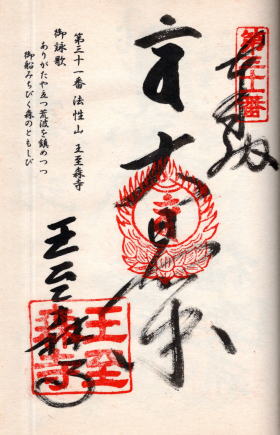 奉拝
第三十一番
大日如来
王至森寺
王至森寺
第三十一番 法性山 王至森寺
御詠歌
ありがたや立つ荒波を鎮めつつ
御船みちびく森のともしび